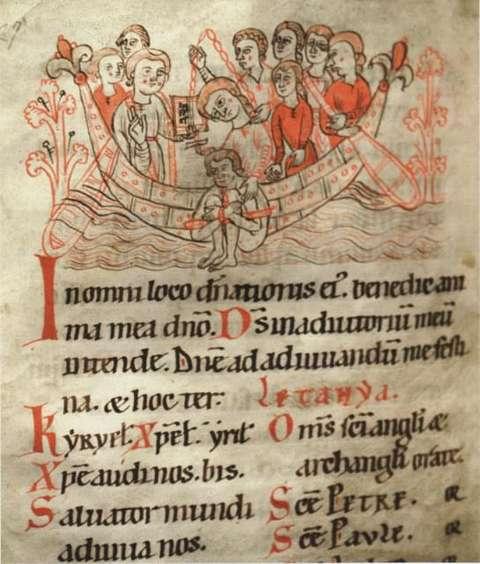 In omni loco dn̄ationis eiꝰ. benedic ani
ma mea dnō. Ds̄ in adiutoriū meū
intende. Dnē ad adiuuandū me festi
na. & hoc ter.
Kyryel. Xpēl. yrīt
Xpē audi nos. bis.
Saluator mundi
adiuua nos.
Letanya.
Om̄s sc̄i angli &
archangli orate.
Scē PETRE. or
Scē PAVLE. or